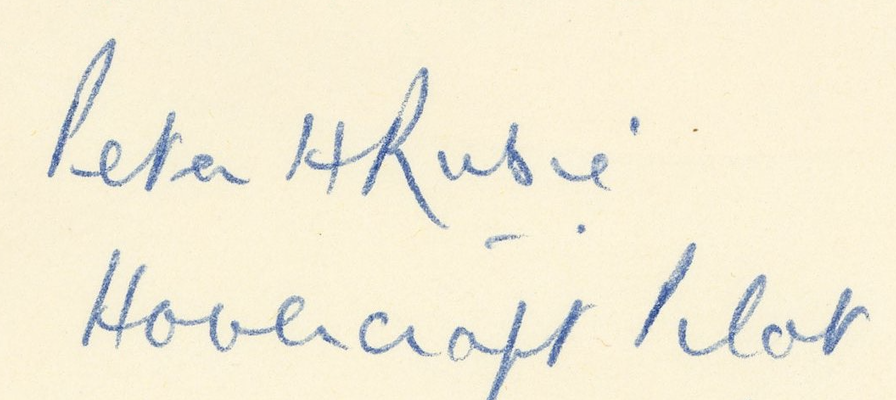 Peter H Rubie
Hovercraft Pilot